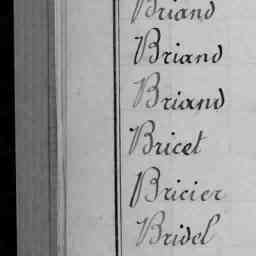 Briand
Briand
Briand
Bricet
Bricier
Bridel